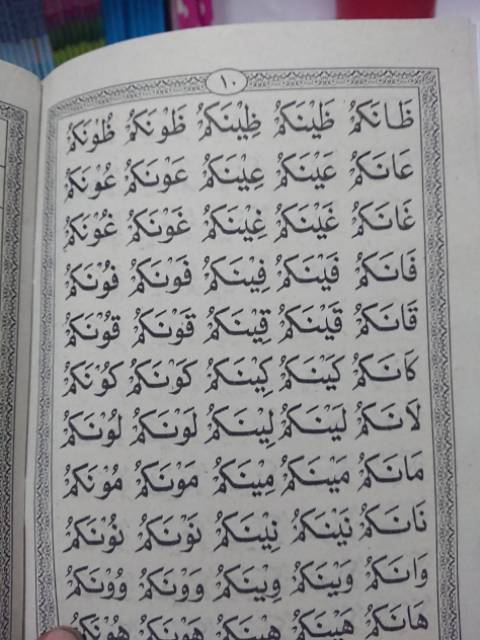 ١٠
ظَانَكُمْ ظَيْنَكُمْ ظِيْنَكُمْ ظَوْنَكُمْ ظُوْنَكُمْ
عَانَكُمْ عَيْنَكُمْ عِيْنَكُمْ عَوْنَكُمْ عُوْنَكُمْ
غَانَكُمْ غَيْنَكُمْ غِيْنَكُمْ غَوْنَكُمْ غُوْنَكُمْ
فَانَكُمْ فَيْنَكُمْ فِيْنَكُمْ فَوْنَكُمْ فُوْنَكُمْ
قَانَكُمْ قَيْنَكُمْ قِيْنَكُمْ قَوْنَكُمْ قُوْنَكُمْ
كَانَكُمْ كَيْنَكُمْ كِيْنَكُمْ كَوْنَكُمْ كُوْنَكُمْ
لَانَكُمْ لَيْنَكُمْ لِيْنَكُمْ لَوْنَكُمْ لُوْنَكُمْ
مَانَكُمْ مَيْنَكُمْ مِيْنَكُمْ مَوْنَكُمْ مُوْنَكُمْ
نَانَكُمْ نَيْنَكُمْ نِيْنَكُمْ نَوْنَكُمْ نُوْنَكُمْ
وَانَكُمْ وَيْنَكُمْ وِيْنَكُمْ وَوْنَكُمْ وُوْنَكُمْ
هَانَكُمْ هَيْنَكُمْ هِيْنَكُمْ هَوْنَكُمْ هُوْنَكُمْ